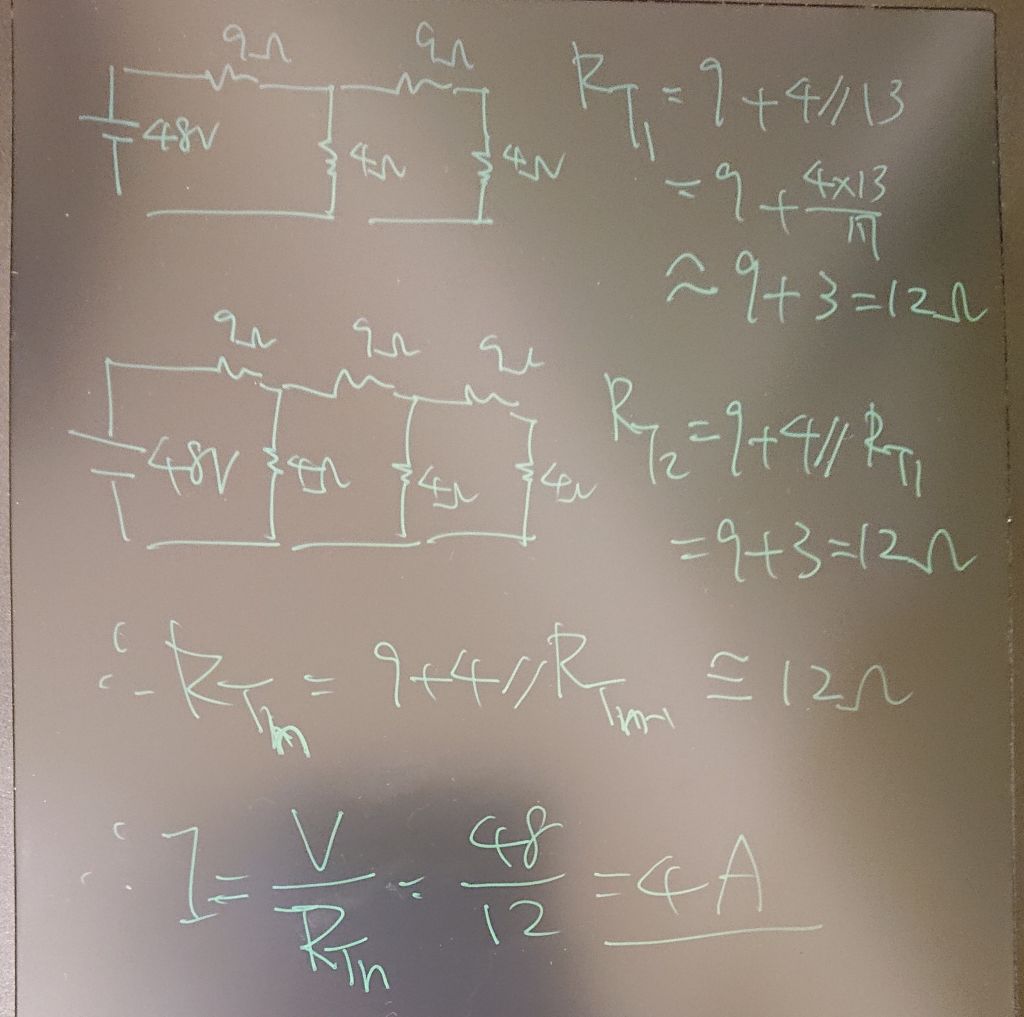 9Ω 9Ω
48V 4Ω 4Ω
R_T1 = 9 + 4 // 13
= 9 + 4×13/17
≈ 9 + 3 = 12Ω
9Ω 9Ω 9Ω
48V 4Ω 4Ω 4Ω
R_T2 = 9 + 4 // R_T1
= 9 + 3 = 12Ω
∴ R_Tn = 9 + 4 // R_Tn-1 ≅ 12Ω
∴ I = V/R_Tn = 48/12 = 4A